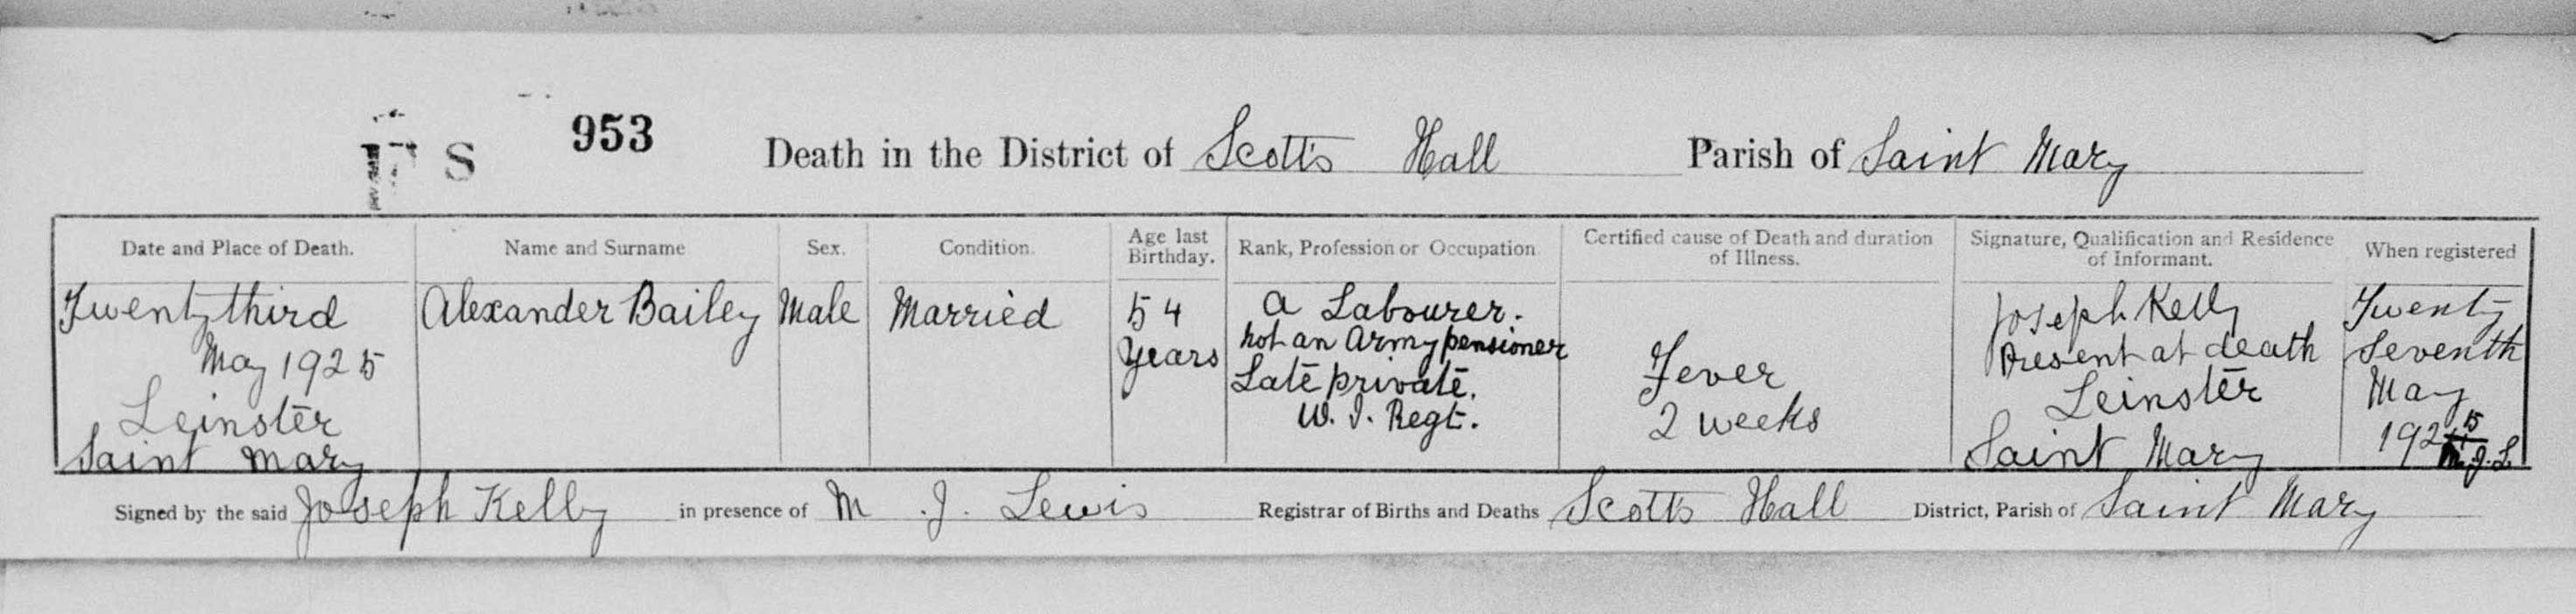 S 953 Death in the District of Scotts Hall Parish of Saint Mary
Date and Place of Death. Name and Surname Sex. Condition. Age last Birthday. Rank, Profession or Occupation Certified cause of Death and duration of Illness. Signature, Qualification and Residence of Informant. When registered
Twenty third
May 1925
Leinster
Saint Mary
Alexander Bailey
Male
Married
54
Years
A Labourer.
not an Army pensioner
Late private.
W. I. Regt.
Fever
2 weeks
Joseph Kelly
Present at death
Leinster
Saint Mary
Twenty
Seventh
May
1925
M.J.L
Signed by the said Joseph Kelly in presence of M. J. Lewis Registrar of Births and Deaths Scotts Hall District, Parish of Saint Mary